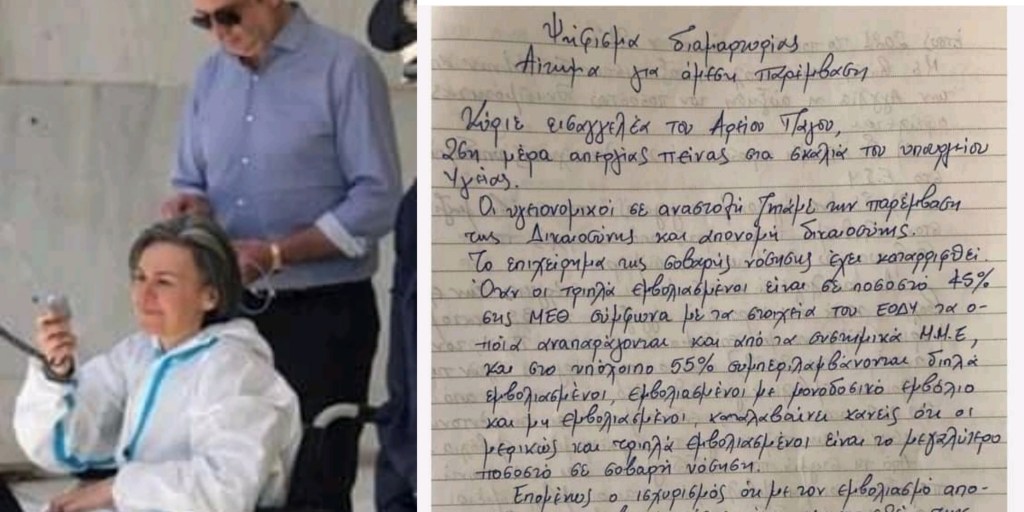 Ψήφισμα διαμαρτυρίας
Αίτημα για άμεση παρέμβαση
Κύριε εισαγγελέα του Αρείου Πάγου,
26η μέρα απεργίας πείνας στα σκαλιά του υπουργείου
Υγείας.
Οι υγειονομικοί σε αναστολή ζητάμε την παρέμβαση
της Δικαιοσύνης και απονομή δικαιοσύνης.
Το επιχείρημα της σοβαρής νόσησης έχει καταρριφθεί.
Όταν οι τριπλά εμβολιασμένοι είναι σε ποσοστό 45%
στις ΜΕΘ σύμφωνα με τα στοιχεία του ΕΟΔΥ τα ο-
ποία αναπαράγονται και από τα συστημικά Μ.Μ.Ε,
και στο υπόλοιπο 55% συμπεριλαμβάνονται διπλά
εμβολιασμένοι, εμβολιασμένοι με μονοδοσικό εμβόλιο
και μη εμβολιασμένοι, καταλαβαίνει κανείς ότι οι
μερικώς και τριπλά εμβολιασμένοι είναι το μεγαλύτερο
ποσοστό σε σοβαρή νόσηση.
Επομένως ο ισχυρισμός ότι με τον εμβολιασμό απο-